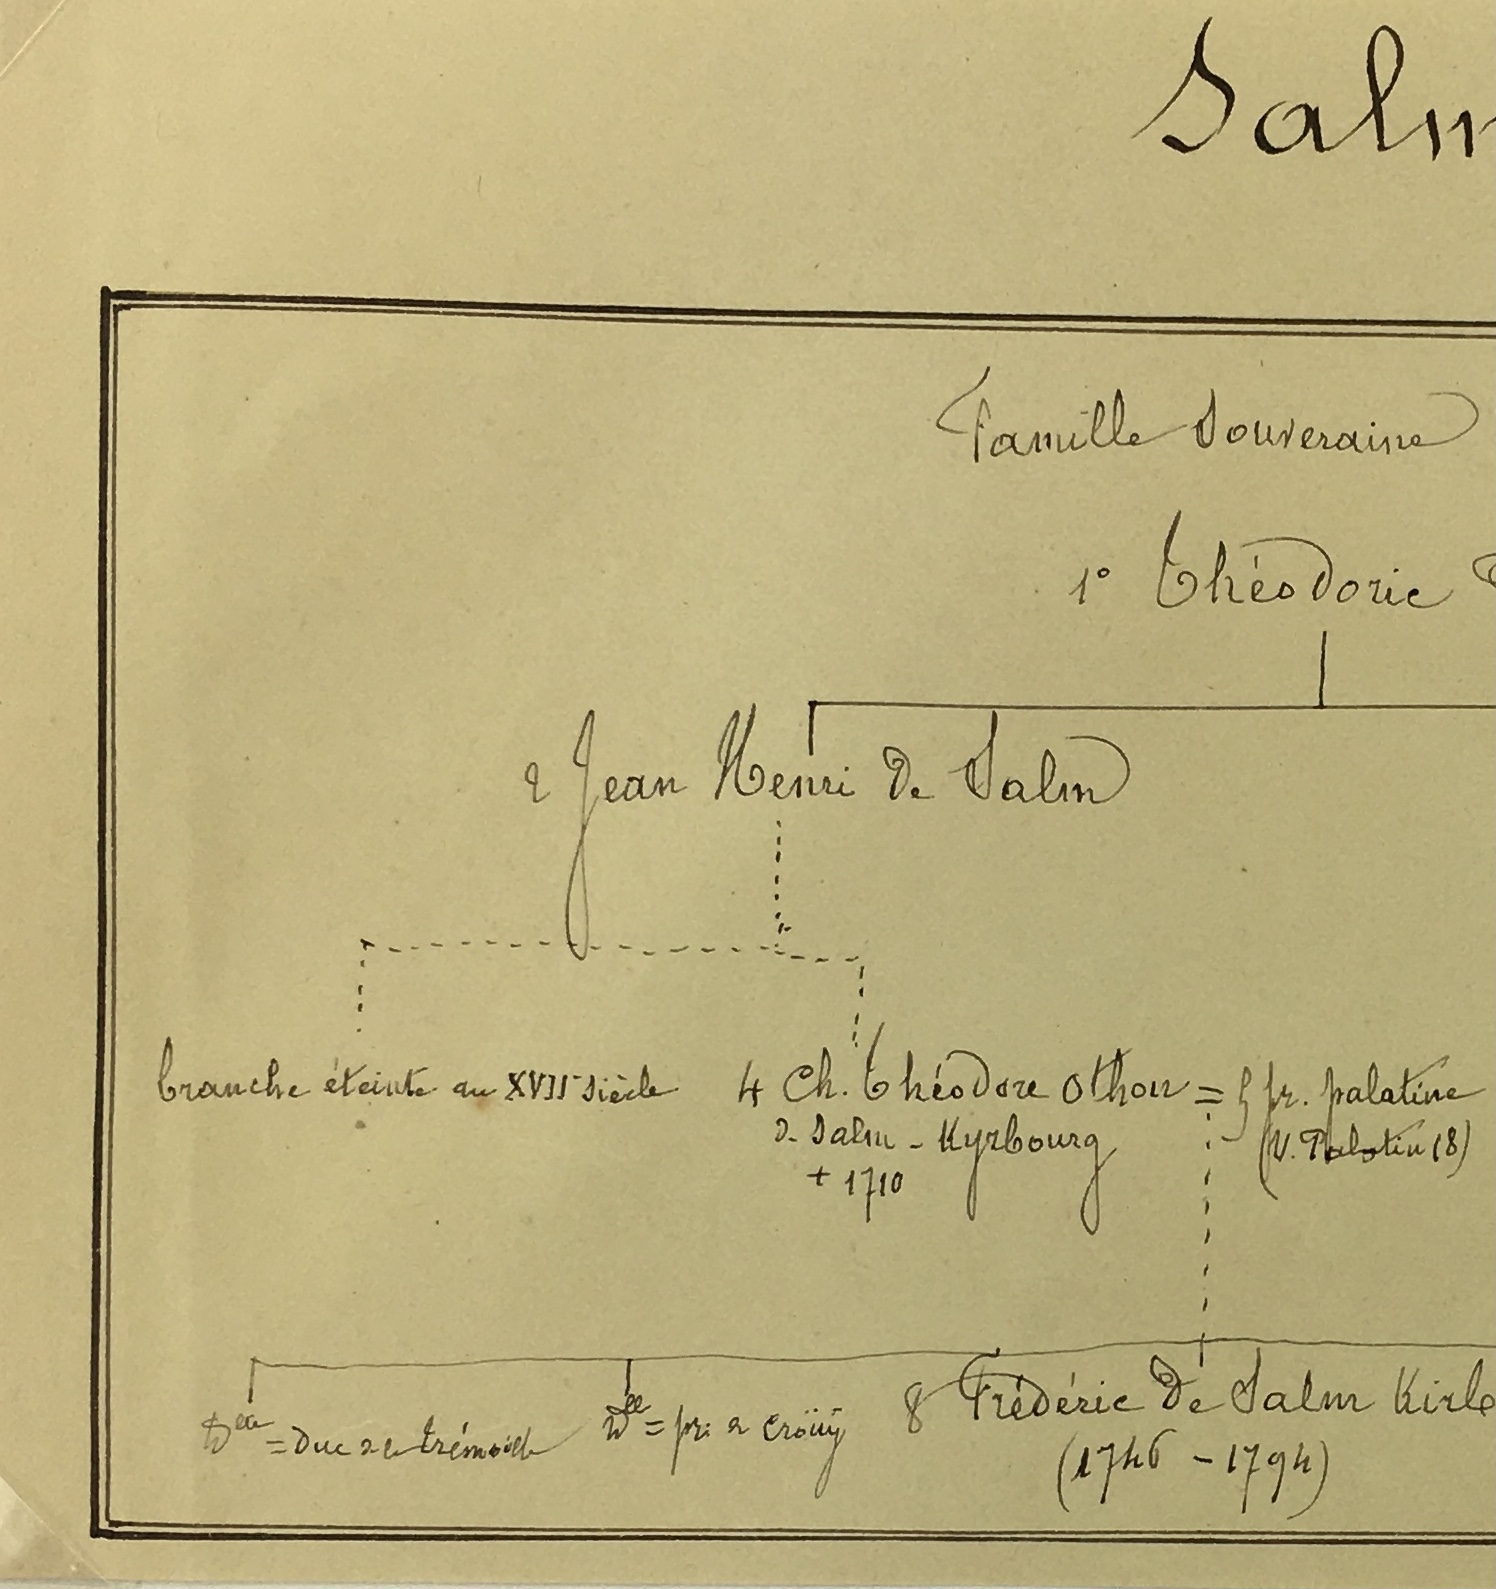 Salm
Famille Souveraine
1° Théodoric
2 Jean Henri de Salm
branche éteinte au XVIIe siècle
4 Ch. Théodore Othon = 5 pr. palatine
d. Salm - Kyrbourg (V. Palatin (8)
+ 1710
Delle = duc de la Trémoille
Delle = pr. de Croüy
8 Frédéric de Salm Kirb
(1746 - 1794)